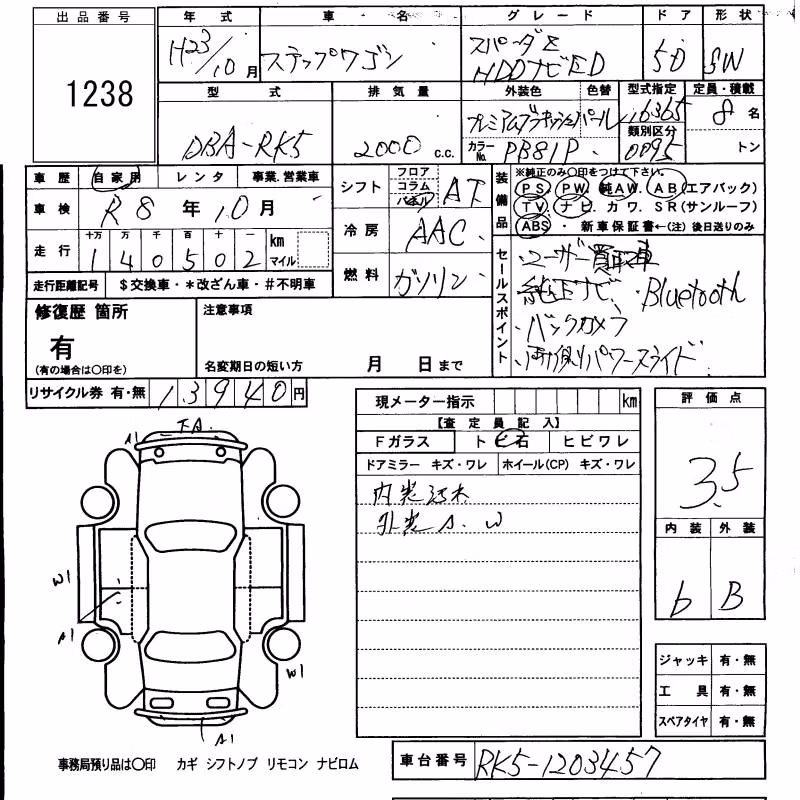 出品番号 年式 車・名 グレード ドア 形状
1238 H23/10月 ステップワゴン スパーダZ HDDナビED 5D SW
型式 排気量 外装色 色替 型式指定 定員・積載
DBA-RK5 2000 c.c. プレミアムブラキッシュパール 16365 8名
カラーNo. PB81P 類別区分 0095 トン
車歴 自家用 レンタ 事業.営業車
車検 R8年10月
走行 十万 万 千 百 十 一 km マイル
140502
走行距離記号 $交換車・*改ざん車・#不明車
シフト フロア コラム パネル AT
冷房 AAC
燃料 ガソリン
装備品 ※純正のみ〇印をつけて下さい。
PS. PW. 純AW. AB(エアバッグ)
TV. ナビ. カワ. SR(サンルーフ)
ABS・新車保証書←(注)後日送りのみ
セールスポイント
・ユーザー買取車
純正ナビ・Bluetooth
・バックカメラ
・両側パワースライド
修復歴 箇所
有
(有の場合は〇印を)
注意事項
名変期日の短い方 月 日まで
リサイクル券 有・無 13940円
現メーター指示 km
【査定員記入】
Fガラス トビ石 ヒビワレ
ドアミラー キズ・ワレ ホイール(CP) キズ・ワレ
内装汚れ
外装A.W
評価点
3.5
内装 外装
b B
A1
W1
A1
W1
A1
ジャッキ 有・無
工具 有・無
スペアタイヤ 有・無
事務局預り品は〇印 カギ シフトノブ リモコン ナビロム
車台番号 RK5-1203457